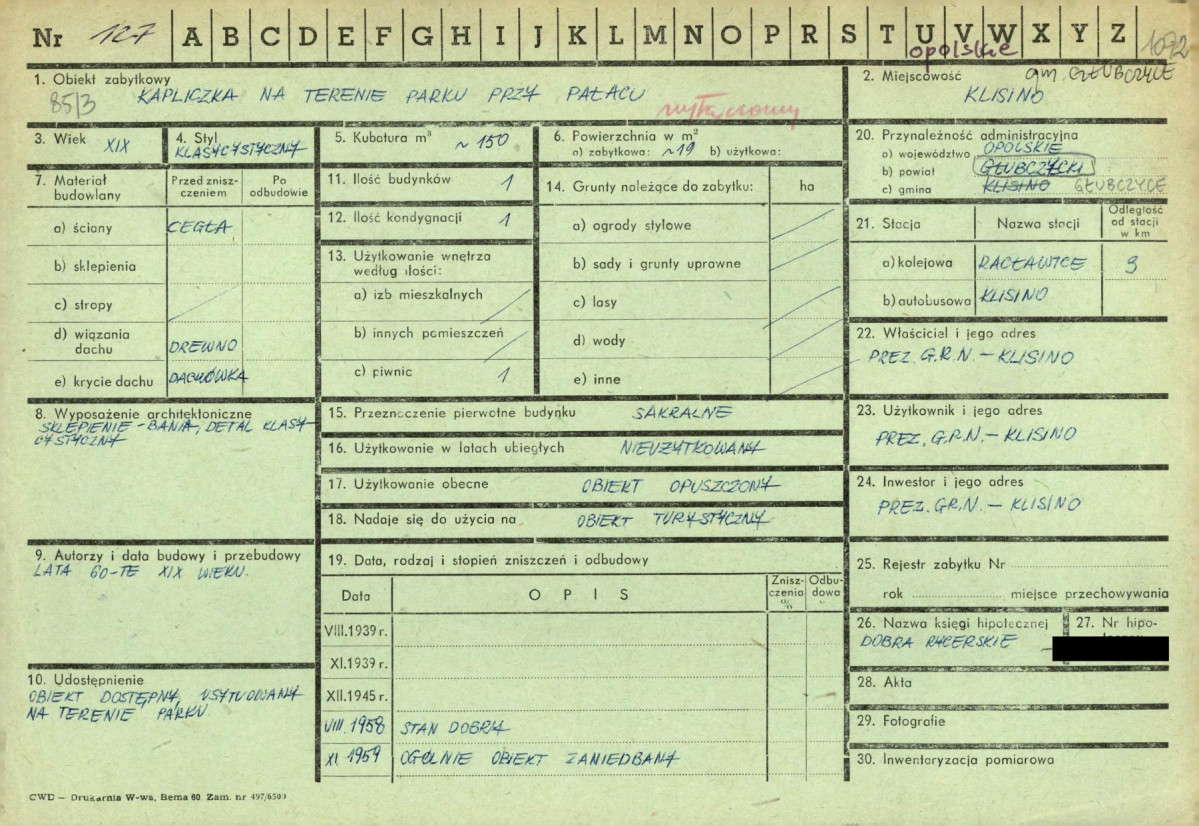 Nr 127 A B C D E F G H I J K L M N O P R S T U V W X Y Z 1072
opolskie
1. Obiekt zabytkowy
85/3 KAPLICZKA NA TERENIE PARKU PRZY PAŁACU
2. Miejscowość gm. GŁUBCZYCE
KLISINO
3. Wiek XIX
4. Styl
KLASYCYSTYCZNY
5. Kubatura m³ ~ 150
6. Powierzchnia w m²
a) zabytkowa: ~19 b) użytkowa:
20. Przynależność administracyjna
a) województwo OPOLSKIE
b) powiat GŁUBCZYCKI
c) gmina KLISINO GŁUBCZYCE
7. Materiał budowlany
Przed zniszczeniem
Po odbudowie
a) ściany CEGŁA
b) sklepienia
c) stropy
d) wiązania dachu DREWNO
e) krycie dachu DACHÓWKA
11. Ilość budynków 1
12. Ilość kondygnacji 1
13. Użytkowanie wnętrza
według ilości:
a) izb mieszkalnych
b) innych pomieszczeń
c) piwnic 1
14. Grunty należące do zabytku: ha
a) ogrody stylowe
b) sady i grunty uprawne
c) lasy
d) wody
e) inne
21. Stacja Nazwa stacji Odległość od stacji w km
a) kolejowa RACŁAWICE 9
b) autobusowa KLISINO
22. Właściciel i jego adres
PREZ. G.R.N. – KLISINO
8. Wyposażenie architektoniczne
SKLEPIENIE - BANIA, DETAL KLASY-
CYSTYCZNY
15. Przeznaczenie pierwotne budynku SAKRALNE
16. Użytkowanie w latach ubiegłych NIEUŻYTKOWANY
17. Użytkowanie obecne OBIEKT OPUSZCZONY
18. Nadaje się do użycia na OBIEKT TURYSTYCZNY
23. Użytkownik i jego adres
PREZ. G.R.N. – KLISINO
24. Inwestor i jego adres
PREZ. G.R.N. – KLISINO
9. Autorzy i data budowy i przebudowy
LATA 60-TE XIX WIEKU.
10. Udostępnienie
OBIEKT DOSTĘPNY, USYTUOWANY
NA TERENIE PARKU
19. Data, rodzaj i stopień zniszczeń i odbudowy
Data OPIS Zniszczenia % Odbudowa
VIII.1939 r.
XI.1939 r.
XII.1945 r.
VIII.1958 STAN DOBRY
XI.1959 OGÓLNIE OBIEKT ZANIEDBANY
25. Rejestr zabytku Nr
rok miejsce przechowywania
26. Nazwa księgi hipotecznej
DOBRA RYCERSKIE
27. Nr hipo-
28. Akta
29. Fotografie
30. Inwentaryzacja pomiarowa
CWD — Drukarnia W-wa, Bema 60. Zam. nr 497/6500